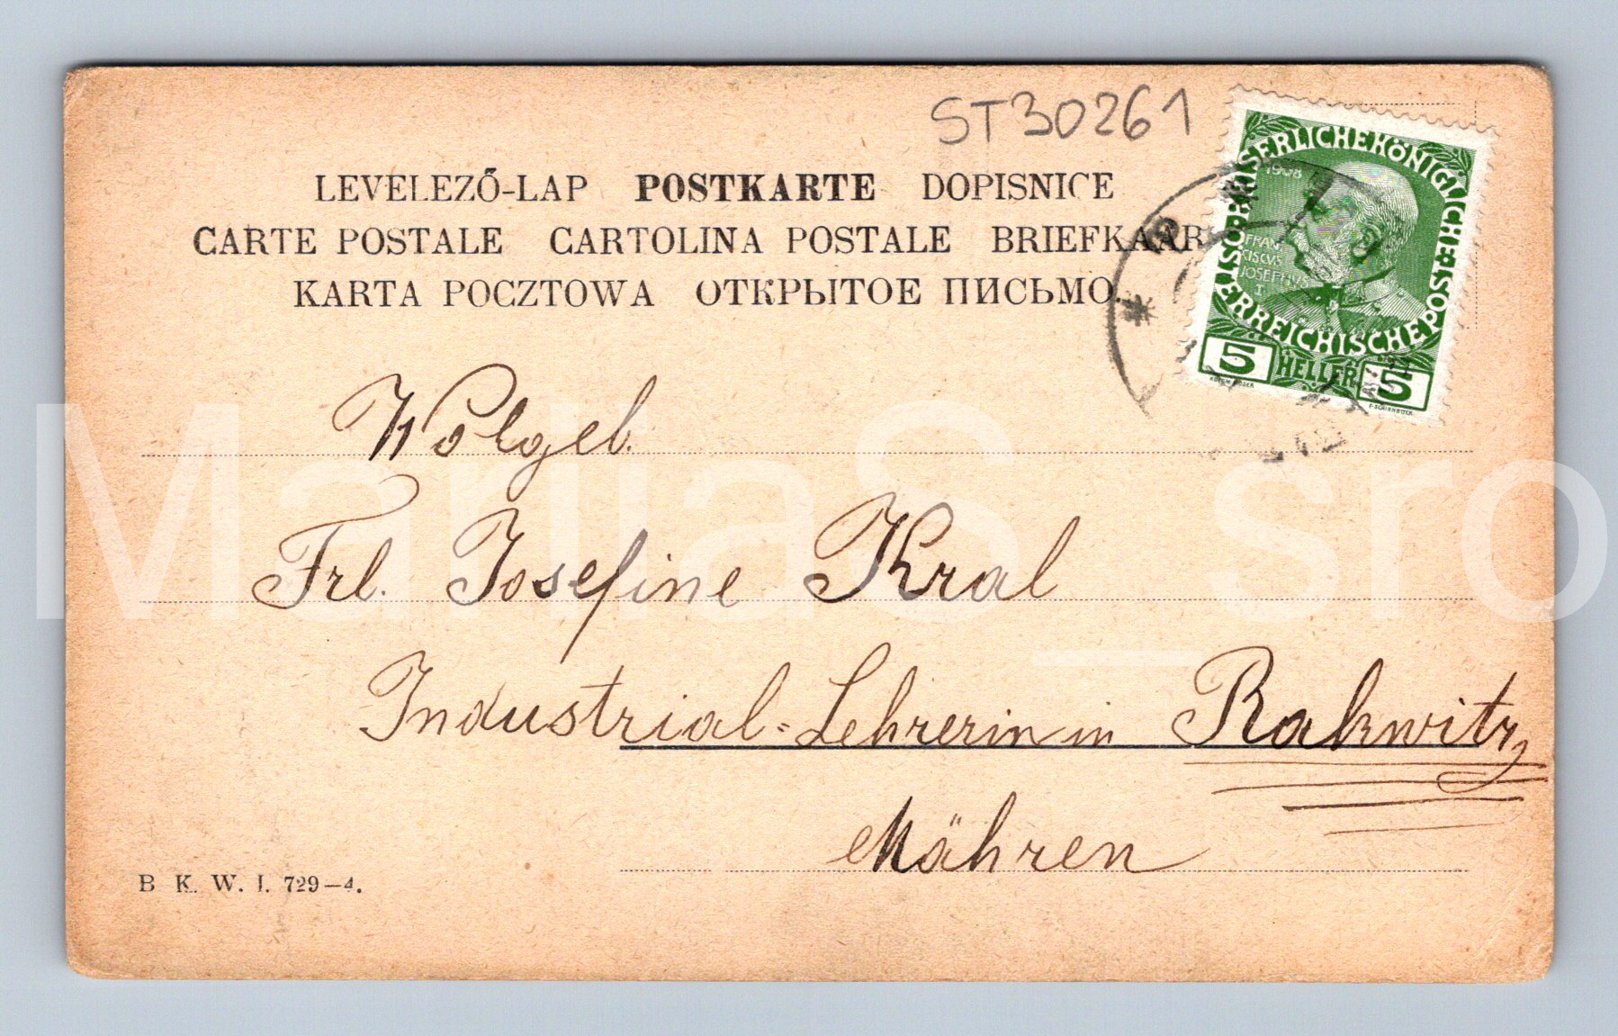 ST30261
LEVELEZŐ-LAP POSTKARTE DOPISNICE
CARTE POSTALE CARTOLINA POSTALE BRIEFKAAR
KARTA POCZTOWA ОТКРЫТОЕ ПИСЬМО.
KAISERLICHE KÖNIGLICHE ÖSTERREICHISCHE POST
1908
FRAN
CISCVS
JOSEPHVS
I
5 HELLER 5
Wolgeb.
Frl. Josefine Kral
Industrial-Lehrerin in Rakwitz,
Mähren
B. K. W. I. 729-4.
MarijaS_sro